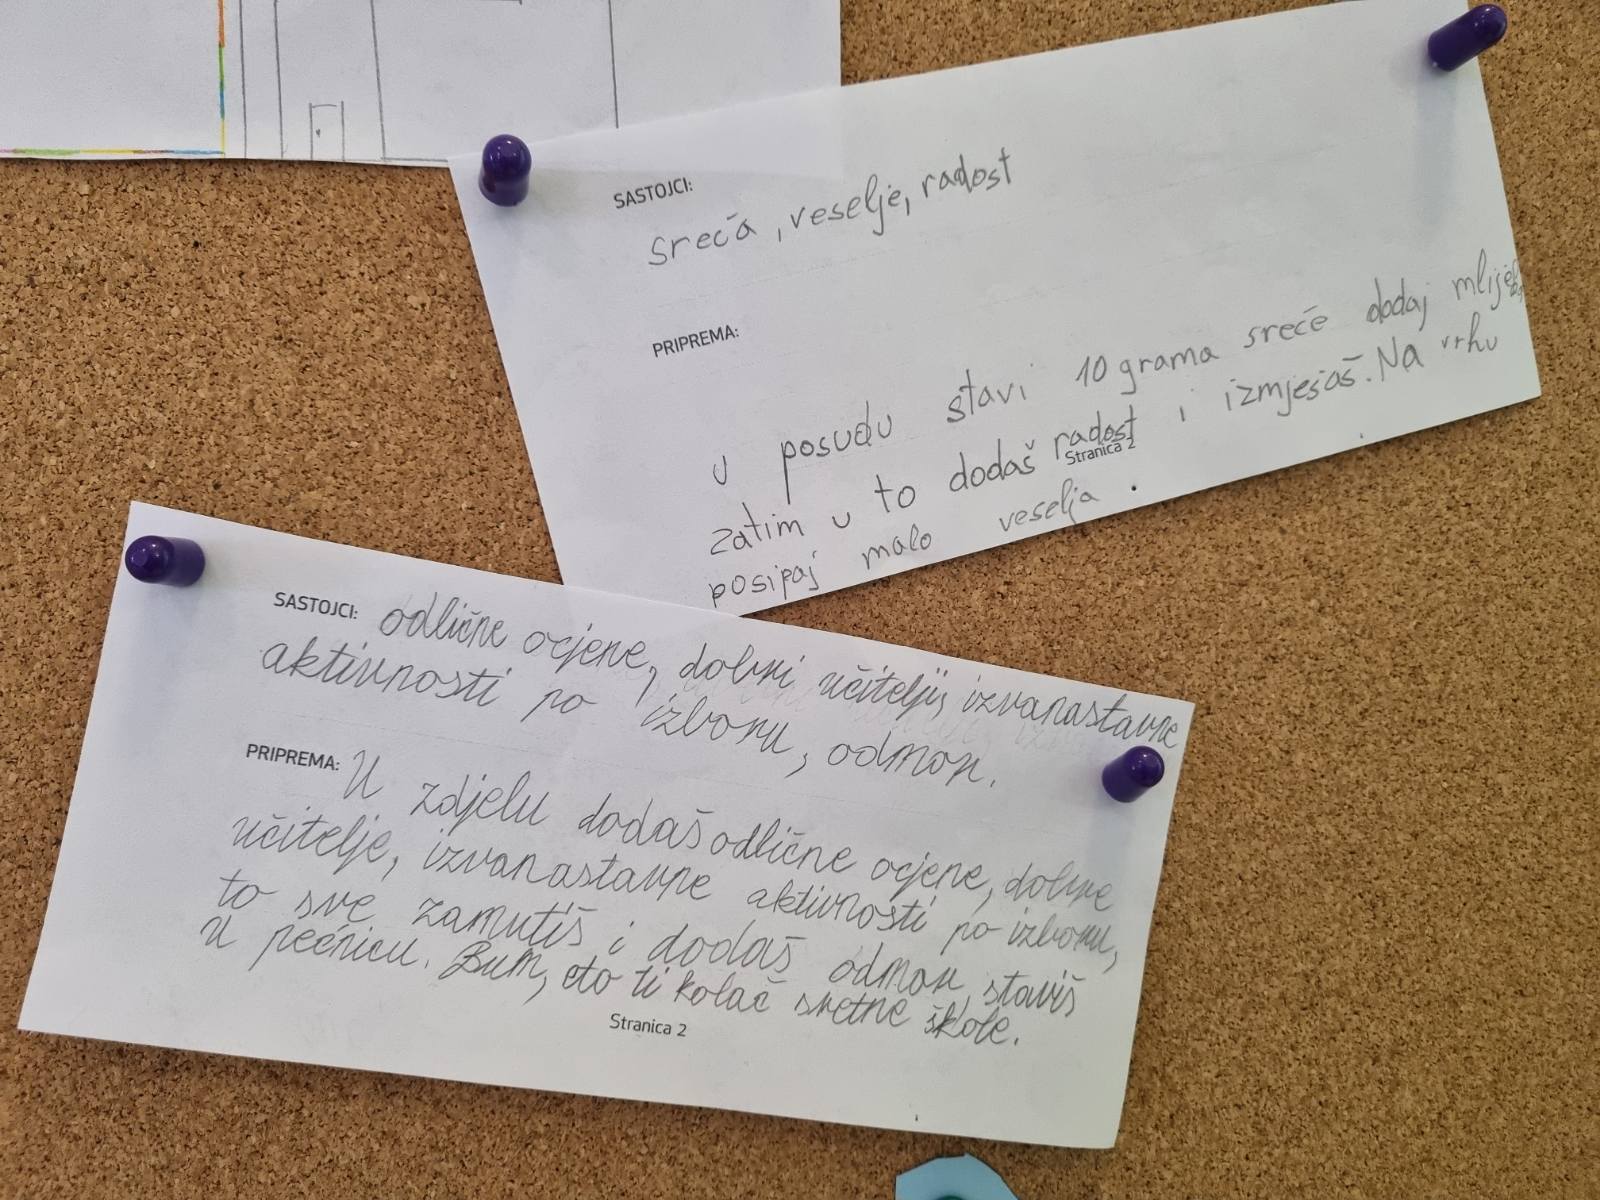 SASTOJCI:
sreća, veselje, radost
PRIPREMA:
U posudu stavi 10 grama sreće dodaj
zatim u to dodaš radost i izmješaš. Na vrhu
Stranica 2
posipaj malo veselja.
SASTOJCI: odlične ocjene, dobri učitelji, izvanastavne
aktivnosti po izboru, odmor.
PRIPREMA: U zdjelu dodaš odlične ocjene, dobre
učitelje, izvanastavne aktivnosti po izboru,
to sve zamutiš i dodaš odmor staviš
u pećnicu. Bum, eto ti kolač sretne škole.
Stranica 2